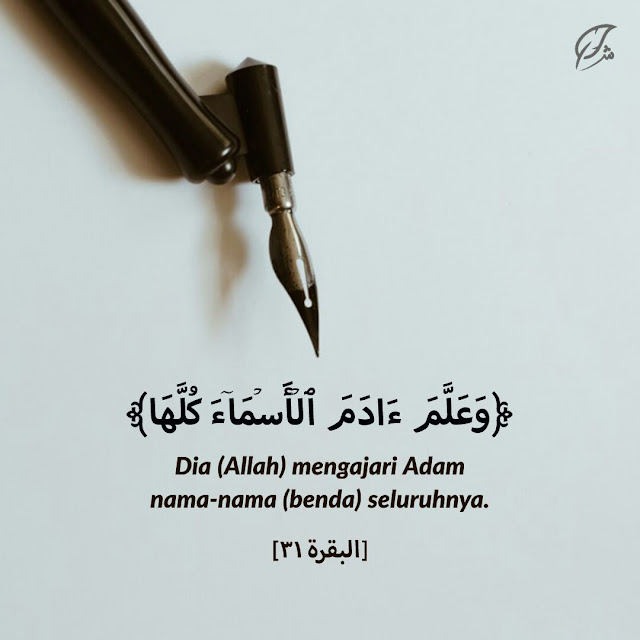 ﴿وَعَلَّمَ ءَادَمَ ٱلۡأَسۡمَآءَ كُلَّهَا﴾
Dia (Allah) mengajari Adam
nama-nama (benda) seluruhnya.
[البقرة ٣١]